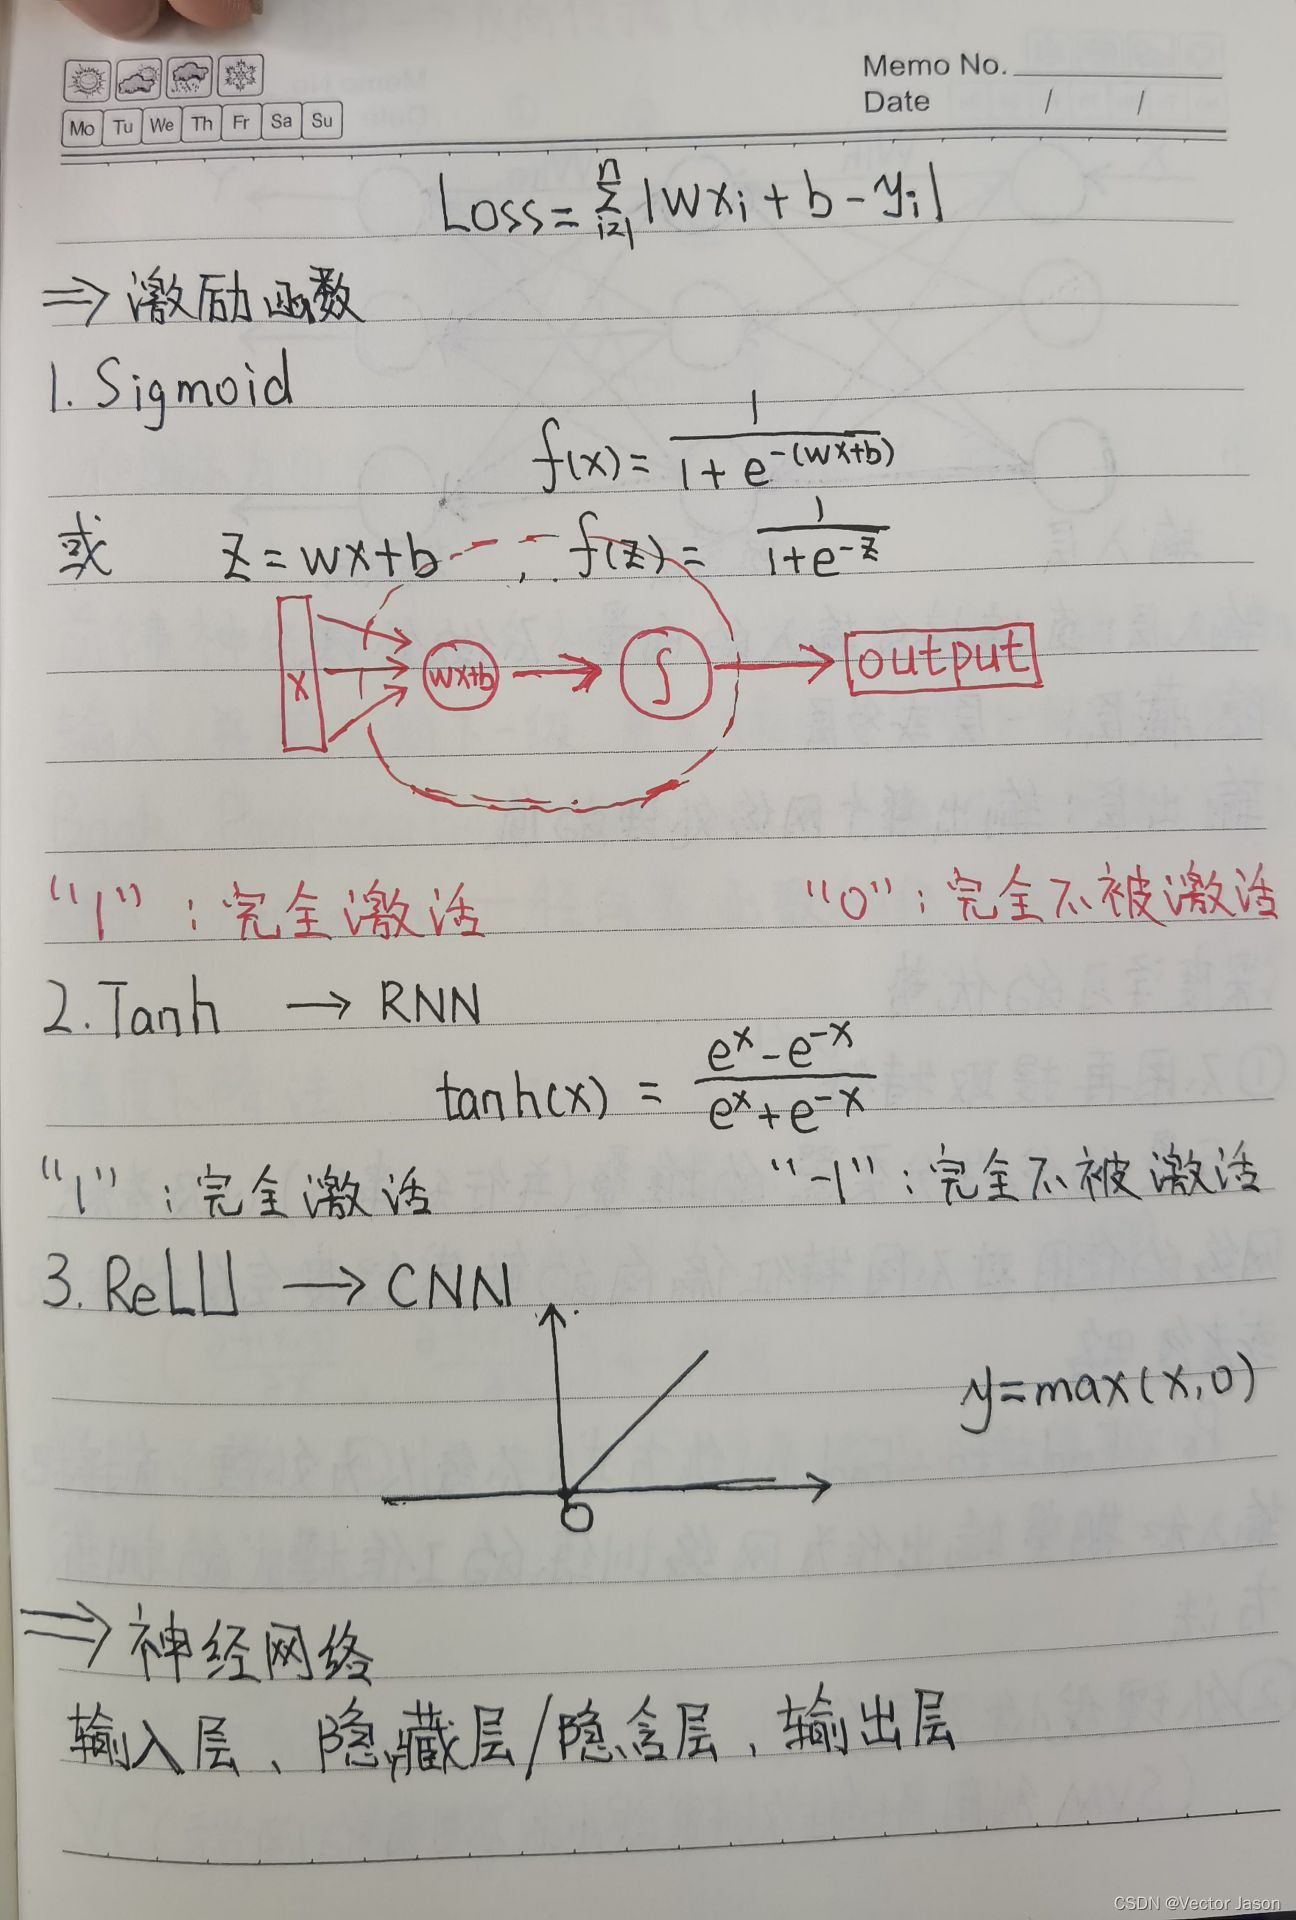 Memo No.
Mo Tu We Th Fr Sa Su
Date / /
Loss = n∑i=1 |wxi + b - yi|
⇒ 激励函数
1. Sigmoid
f(x) = 1/(1 + e^-(wx+b))
或 z = wx+b , f(z) = 1/(1+e^-z)
x wx+b ∫ output
“1”：完全激活 “0”：完全不被激活
2. Tanh → RNN
tanh(x) = (e^x - e^-x)/(e^x + e^-x)
“1”：完全激活 “-1”：完全不被激活
3. ReLU → CNN
y = max(x,0)
0
⇒ 神经网络
输入层、隐藏层/隐含层、输出层
CSDN @Vector Jason